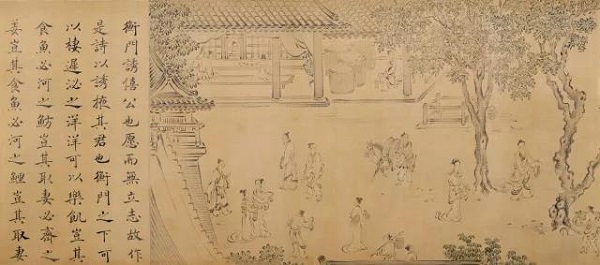 衡門誘僖公也愿而無立志故作
是詩以誘掖其君也衡門之下可
以棲遲泌之洋洋可以樂飢豈其
食魚必河之魴豈其取妻必齊之
姜豈其食魚必河之鯉豈其取妻